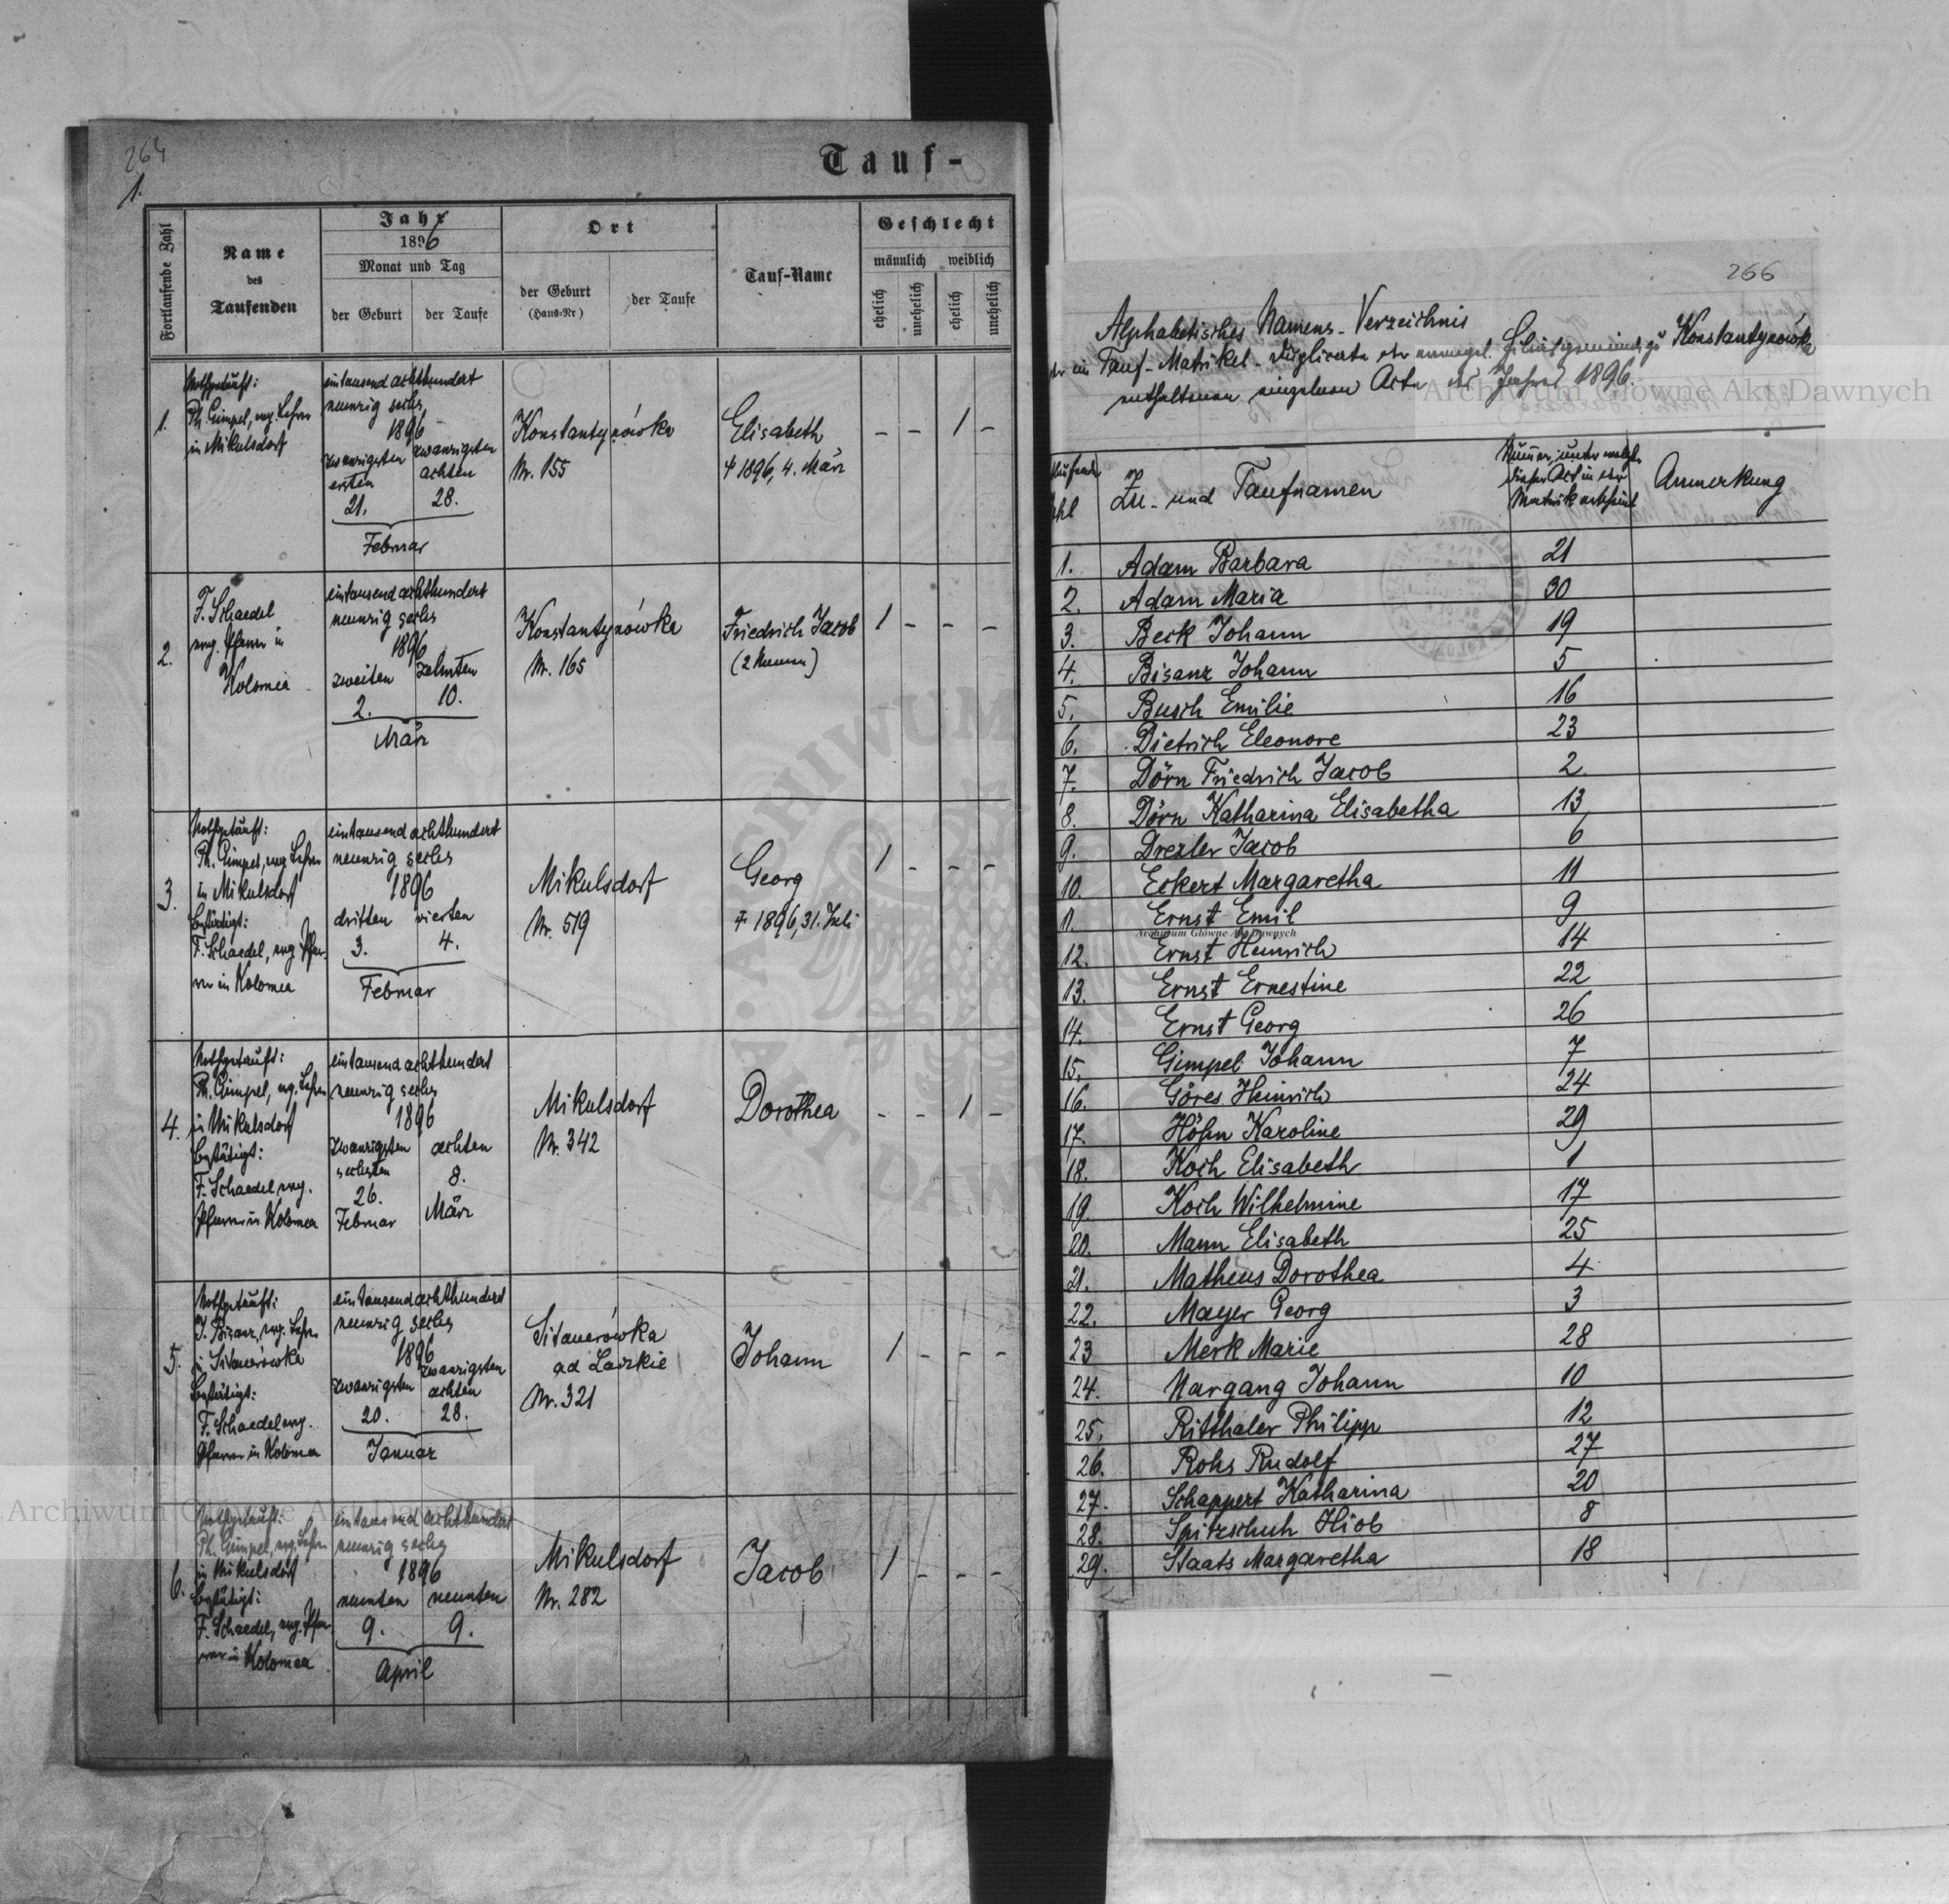 264
1.
Tauf-
Fortlaufende Zahl
Name
des
Taufenden
Jahr
1896
Monat und Tag
der Geburt
der Taufe
Ort
der Geburt
(Haus-Nr)
der Taufe
Tauf-Name
Geschlecht
männlich
weiblich
ehelich
unehelich
ehelich
unehelich
1.
Nothgetauft:
Ph. Gimpel, evg. Lehrer
in Mikulsdorf
eintausend achthundert
neunzig sechs
1896
zwanzigsten
ersten
21.
zwanzigsten
achten
28.
Februar
Konstantynówka
Nr. 155
Elisabeth
† 1896, 4. März
- - 1 -
2.
F. Schaedel
evg. Pfarrer in
Kolomea
eintausend achthundert
neunzig sechs
1896
zweiten zehnten
2. 10.
März
Konstantynówka
Nr. 165
Friedrich Jacob
(2 Namen)
1 - - -
3.
Nothgetauft:
Ph. Gimpel, evg. Lehrer
in Mikulsdorf
Bestätigt:
F. Schaedel, evg. Pfar-
rer in Kolomea
eintausend achthundert
neunzig sechs
1896
dritten vierten
3. 4.
Februar
Mikulsdorf
Nr. 519
Georg
† 1896, 31. Juli
1 - - -
4.
Nothgetauft:
Ph. Gimpel, evg. Lehrer
in Mikulsdorf
Bestätigt:
F. Schaedel, evg.
Pfarrer in Kolomea
eintausend achthundert
neunzig sechs
1896
zwanzigsten
sechsten
26.
Februar
achten
8.
März
Mikulsdorf
Nr. 342
Dorothea
- - 1 -
5.
Nothgetauft:
J. Bisanz, evg. Lehrer
in Sitauerówka
Bestätigt:
F. Schaedel evg.
Pfarrer in Kolomea
eintausend achthundert
neunzig sechs
1896
zwanzigsten
20.
zwanzigsten
achten
28.
Januar
Sitauerówka
ad Laczkie
Nr. 321
Johann
1 - - -
6.
Nothgetauft:
Ph. Gimpel, evg. Lehrer
in Mikulsdorf
Bestätigt:
F. Schaedel, evg. Pfar-
rer in Kolomea
eintausend achthundert
neunzig sechs
1896
neunten neunten
9. 9.
April
Mikulsdorf
Nr. 282
Jacob
1 - - -
266
Alphabetisches Namens-Verzeichnis
der im Tauf-Matrikel-Duplicate der evangel. Filialgemeinde zu Konstantynówka
enthaltenen einzelnen Acte des Jahres 1896.
Zahl
Zu- und Taufnamen
Numer, unter welcher
dieser Act in der
Matrik erscheint
Anmerkung
1. Adam Barbara 21
2. Adam Maria 30
3. Beck Johann 19
4. Bisanz Johann 5
5. Busch Emilie 16
6. Dietrich Eleonore 23
7. Dörn Friedrich Jacob 2
8. Dörn Katharina Elisabetha 13
9. Drezler Jacob 6
10. Eckert Margaretha 11
11. Ernst Emil 9
12. Ernst Heinrich 14
13. Ernst Ernestine 22
14. Ernst Georg 26
15. Gimpel Johann 7
16. Göres Heinrich 24
17. Höhn Karoline 29
18. Koch Elisabeth 1
19. Koch Wilhelmine 17
20. Mann Elisabeth 25
21. Matheus Dorothea 4
22. Mayer Georg 3
23 Merk Marie 28
24. Nargang Johann 10
25. Ritthaler Philipp 12
26. Rohs Rudolf 27
27. Schappert Katharina 20
28. Spitzschuh Hiob 8
29. Staats Margaretha 18
Archiwum Główne Akt Dawnych
Archiwum Główne Akt Dawnych
Archiwum Główne Akt Dawnych